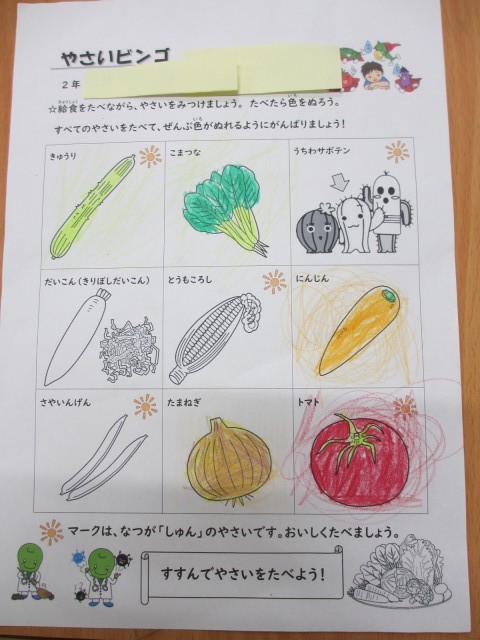 やさいビンゴ
2年
☆給食をたべながら、やさいをみつけましょう。たべたら色をぬろう。
すべてのやさいをたべて、ぜんぶ色がぬれるようにがんばりましょう！
きゅうり
こまつな
うちわサボテン
だいこん（きりぼしだいこん）
とうもろこし
にんじん
さやいんげん
たまねぎ
トマト
マークは、なつが「しゅん」のやさいです。おいしくたべましょう。
すすんでやさいをたべよう！